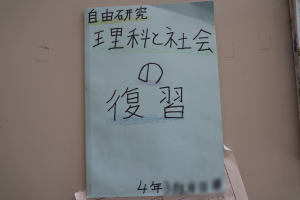 自由研究
理科と社会
の
復習
4年